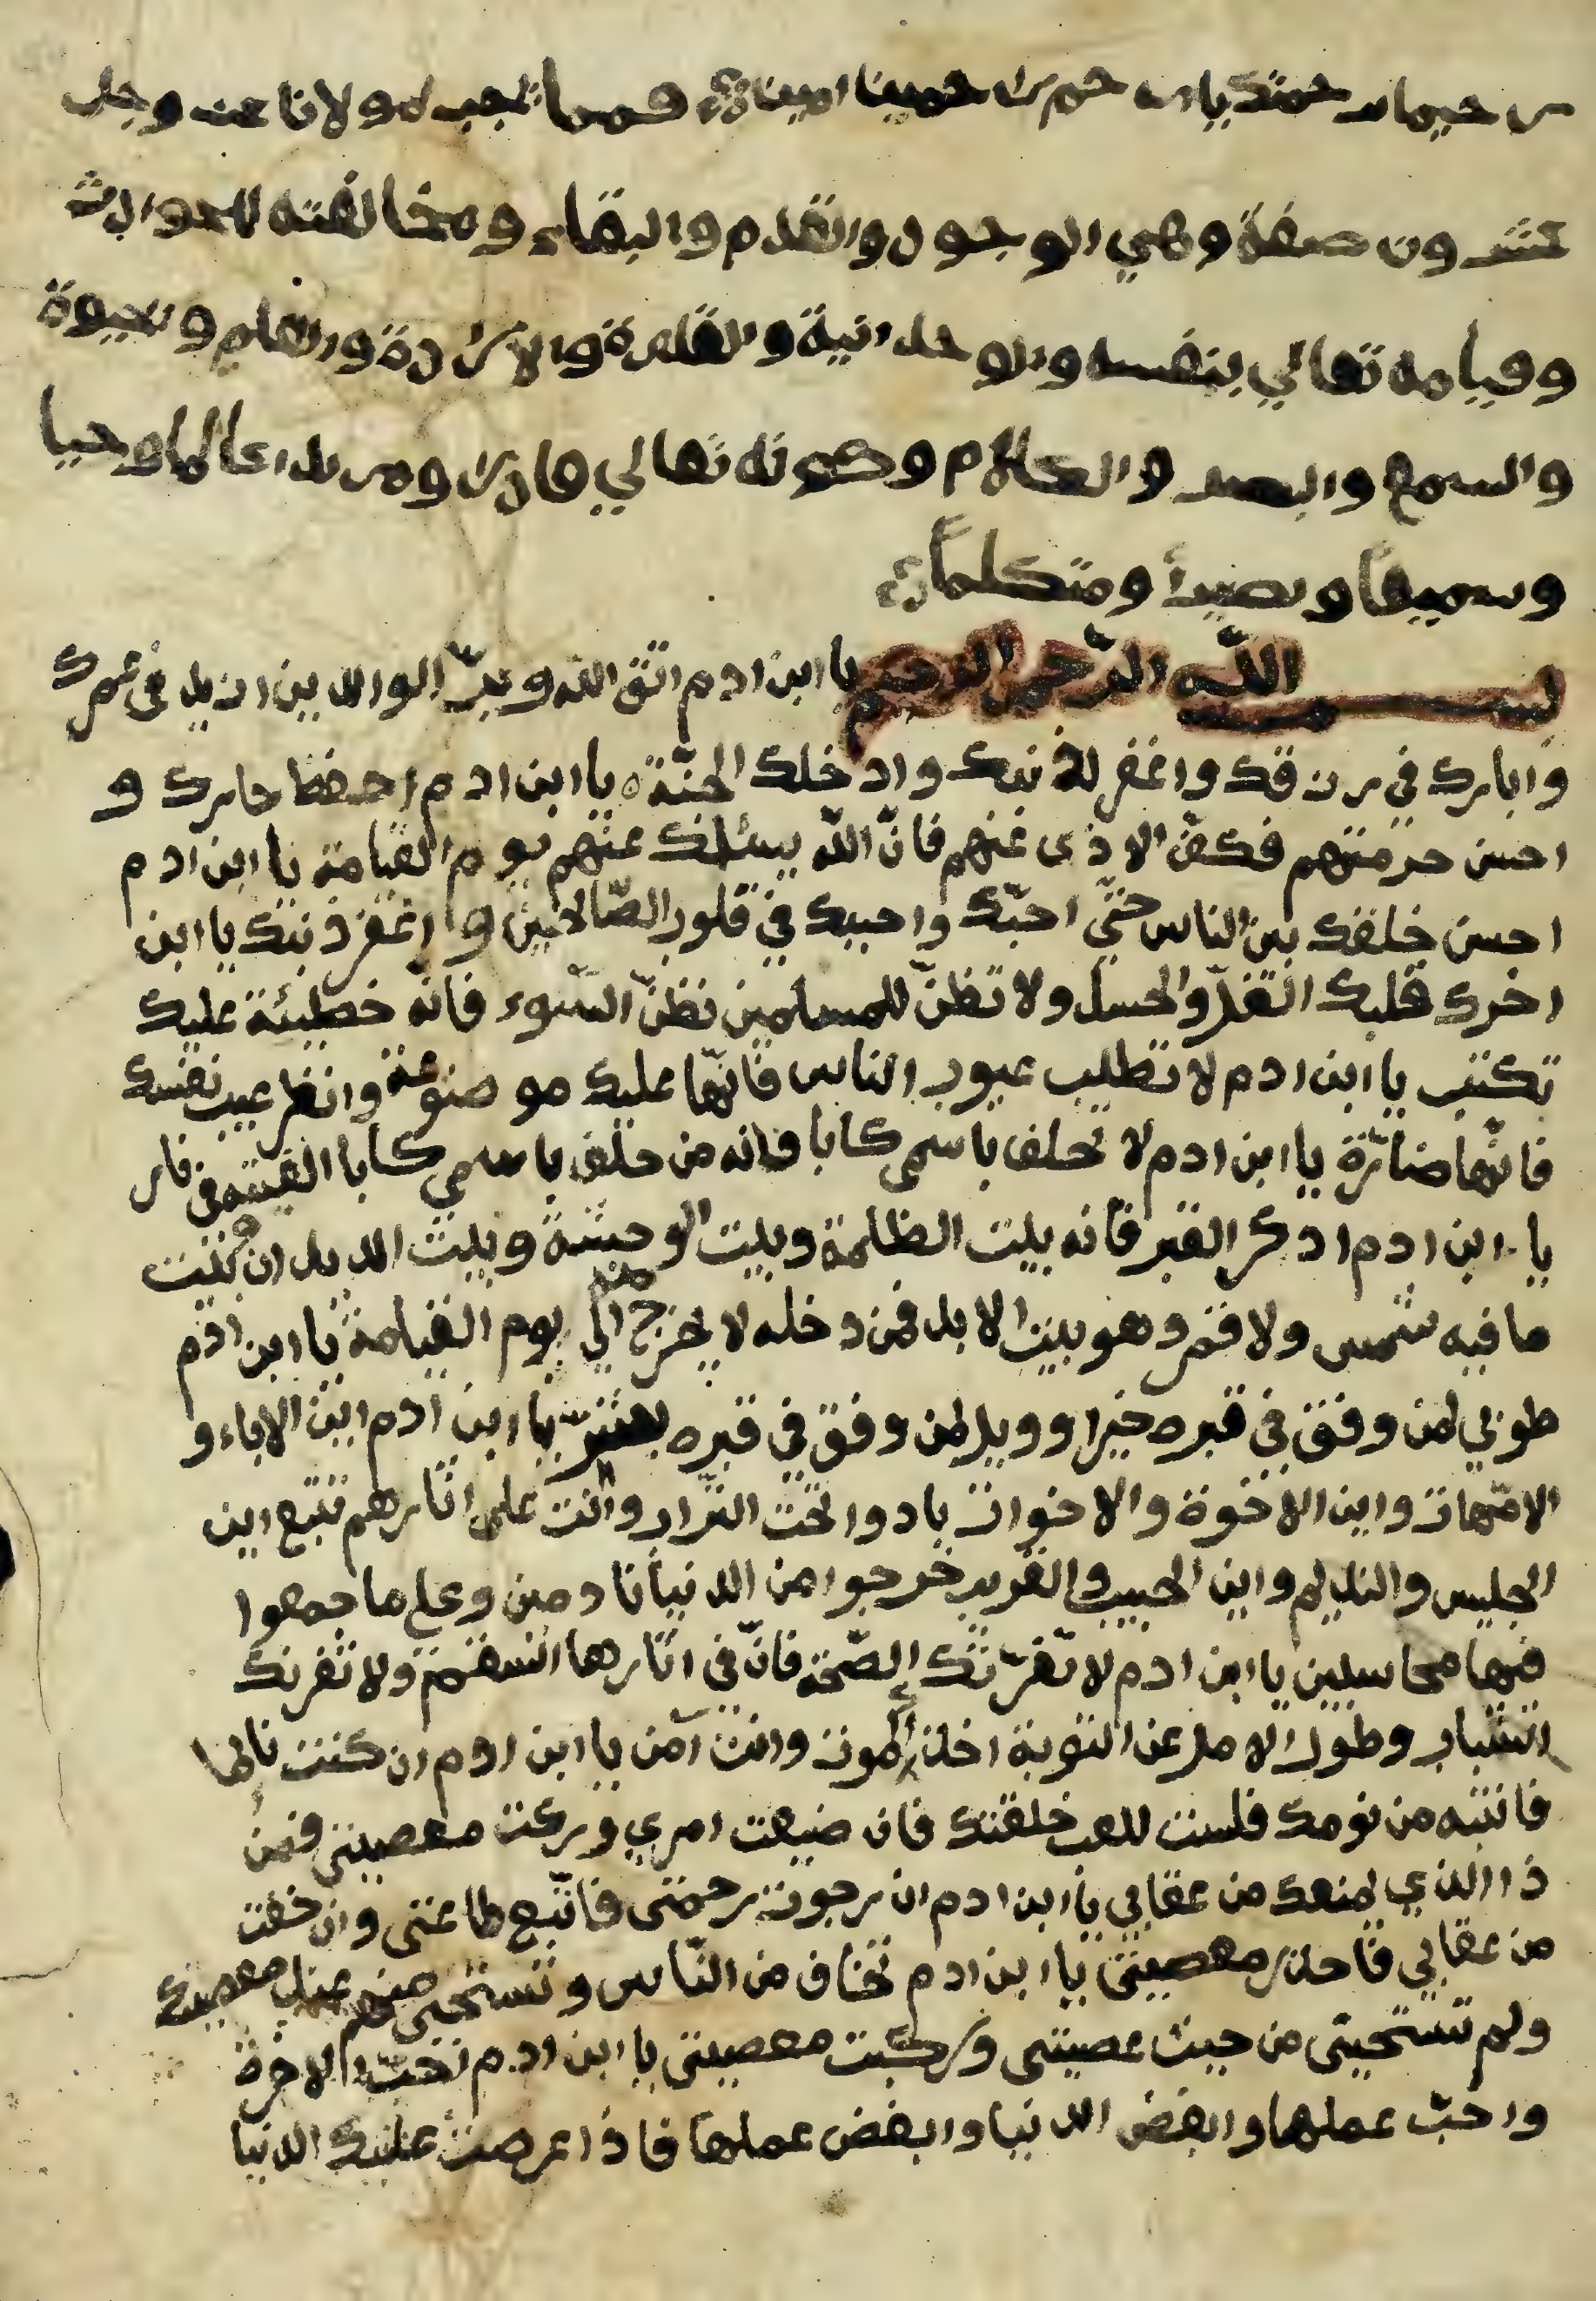 رحيما برحمتك يا ارحم الرحمينا امينا فمما يجب لمولانا عز وجل
عشرون صفة وهي الوجود والقدم والبقاء ومخالفته للحوادث
وقيامه تعالي بنفسه والوحدانية والقدرة والارادة والعلم والحيوة
والسمع والبصر والكلام وكونه تعالي قادرا ومريدا عالما وحيا
وسميعا وبصيرا ومتكلما
بسم الله الرّحمن الرحيم يا ابن ادم اتق الله وبرّ الوالدين ازيد فى عمرك
وابارك في رزقك واغفر لك ذنبك وادخلك الجنّة يا ابن ادم احفظ جارك و
احسن حرمتهم فكفّ الاذى عنهم فانّ الله يسئلك عنهم يوم القيامة يا ابن ادم
احسن خلقك بين الناس حتّي احبّك واحببك في قلوب الصّالحين واغفر ذنبك يا ابن
اخرك قلبك الغلّ والحسد ولا تظنّ للمسلمين نظنّ السّوء فانّه خطيئة عليك
تكتب يا ابن ادم لا تطلب عيوب الناس فانّها عليك موضوعة وانظر عيب نفسك
فانّها ضارّة يا ابن ادم لا تحلف باسمي كاذبا فانه من حلف باسمي كاذبا القيته فى نار
يا ابن ادم اذكر القبر فانه بيت الظلمة وبيت الوحشة وبيت الديدان بيت
ما فيه شمس ولا قمر وهو بيت الابد فمن دخله لا يخرج منه الي يوم القيامة يا ابن ادم
طوبي لمن وفق في قبره خيرا وويل لمن وفق في قبره بشرّ يا ابن ادم اين الاباء و
الامّهات واين الاخوة والاخوات بادوا تحت التراب وانت على اثارهم تتبع اين
الجليس والنديم واين الحبيب والقريب خرجوا من الدنيا نادمين وعلى ما جمعوا
فيها محاسبين يا ابن ادم لا تغرّنّك الصّحّة فانّ في اثارها السقم ولا تغرنك
الشباب وطول الامل عن التوبة اخذ الموت وانت آمن يا ابن ادم ان كنت نائما
فانتبه من نومك فلست للعب خلقتك فان ضيعت امري وركبت معصيتى فمن
ذا الذي يمنعك من عقابي يا ابن ادم ان رجوت رحمتى فاتّبع طاعتى وان خفت
من عقابي فاحذر معصيتى يا ابن ادم تخاف من النّاس وتستحيى منهم عند معصيتك
ولم تستحيى من حيث عصيتنى وركبت معصيتى يا ابن ادم احبّ الاخرة
واحبّ عملها وابغض الدنيا وابغض عملها فاذا عرضت عليك الدنيا